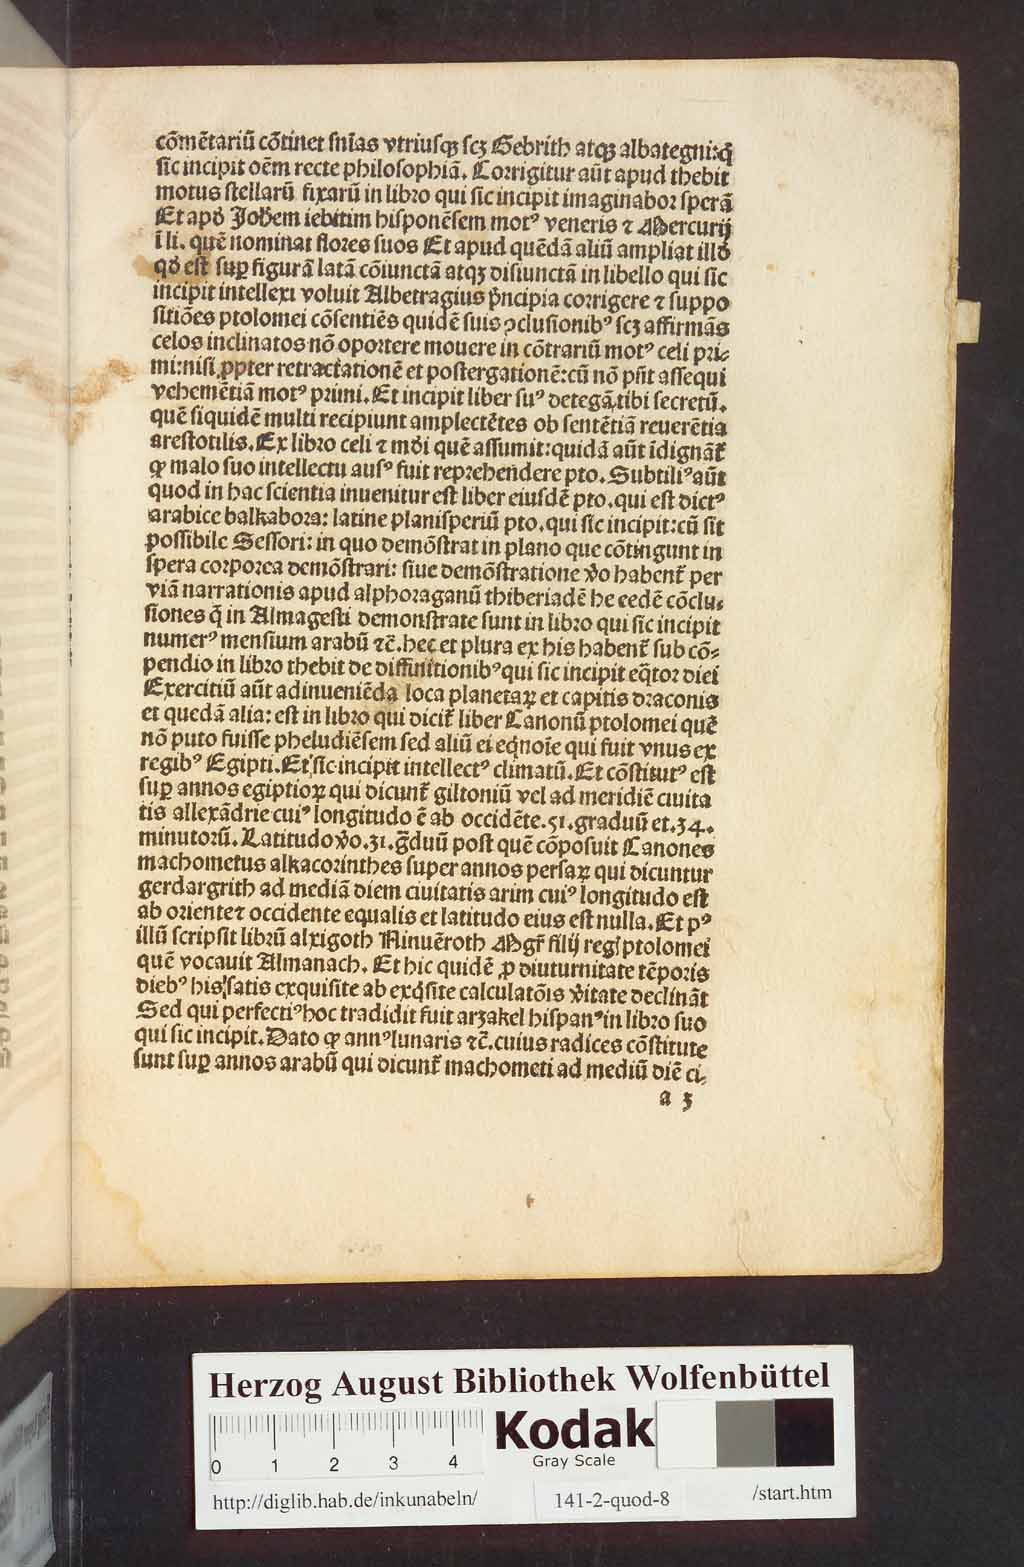 cõmẽtariũ cõtinet snĩas vtriusqꝫ scꝫ Gebrith atqꝫ albategni:q̃
sic incipit oẽm recte philosophiã. Corrigitur aũt apud thebit
motus stellarũ fixarũ in libro qui sic incipit imaginabor sperã
Et apđ Joħem iebitim hisponẽsem motꝰ veneris ⁊ Mercurij
ĩ li. quẽ nominat flores suos Et apud quẽdã aliũ ampliat illđ
qđ est suꝑ figurã latã cõiunctã atqꝫ disiunctã in libello qui sic
incipit intellexi voluit Albetragius p̃ncipia corrigere ⁊ suppo
sitiões ptolomei cõsentiẽs quidẽ suis ꝯclusionibꝰ scꝫ affirmãs
celos inclinatos nõ oportere mouere in cõtrariũ motꝰ celi pri⸗
mi:nisi ꝓpter retractationẽ et postergationẽ:cũ nõ pñt assequi
vehemẽtiã motꝰ primi. Et incipit liber suꝰ detegã tibi secretũ.
quẽ siquidẽ multi recipiunt amplectẽtes ob sentẽtiã reuerẽtia
arestotilis. Ex libro celi ⁊ mđi quẽ assumit:quidã aũt ĩdignãt᷑
ꝙ malo suo intellectu ausꝰ fuit reprehendere pto. Subtiliꝰ aũt
quod in hac scientia inuenitur est liber eiusdẽ pto. qui est dictꝰ
arabice balkabora: latine planisperiũ pto. qui sic incipit:cũ sit
possibile Sessori: in quo demõstrat in plano que cõtingunt in
spera corporea demõstrari: siue demõstratione ṽo habent᷑ per
viã narrationis apud alphoraganũ thiberiadẽ he eedẽ cõclu⸗
siones q̃ in Almagesti demonstrate sunt in libro qui sic incipit
numerꝰ mensium arabũ ⁊c̃. hec et plura ex his habent᷑ sub cõ⸗
pendio in libro thebit de diffinitionibꝰ qui sic incipit eq̃tor diei
Exercitiũ aũt adinueniẽda loca planetaꝝ et capitis draconis
et quedã alia: est in libro qui dicit᷑ liber Canonũ ptolomei quẽ
nõ puto fuisse pheludiẽsem sed aliũ ei eq̃noĩe qui fuit vnus ex
regibꝰ Egipti. Et sic incipit intellectꝰ climatũ. Et cõstitutꝰ est
suꝑ annos egiptioꝝ qui dicunt᷑ giltoniũ vel ad meridiẽ ciuita
tis allexãdrie cuiꝰ longitudo ẽ ab occidẽte .51. graduũ et .34.
minutorũ. Latitudo ṽo .31. g̃duũ post quẽ cõposuit Canones
machometus alkacorinthes super annos persaꝝ qui dicuntur
gerdargrith ad mediã diem ciuitatis arim cuiꝰ longitudo est
ab oriente⁊ occidente equalis et latitudo eius est nulla. Et pꝰ
illũ scripsit librũ alxigoth Ninuẽroth Mgr̃ filij reg ptolomei
quẽ vocauit Almanach. Et hic quidẽ ꝓ diuturnitate tẽporis
diebꝰ his satis exquisite ab exq̃site calculatõis ṽitate declinãt
Sed qui perfectiꝰ hoc tradidit fuit arzakel hispanꝰ in libro suo
qui sic incipit. Dato ꝙ annꝰ lunaris ⁊c̃. cuius radices cõstitute
sunt suꝑ annos arabũ qui dicunt᷑ machometi ad mediũ diẽ ci⸗
a 3
Herzog August Bibliothek Wolfenbüttel
0 1 2 3 4
Kodak
Gray Scale
http://diglib.hab.de/inkunabeln/ 141-2-quod-8 /start.htm